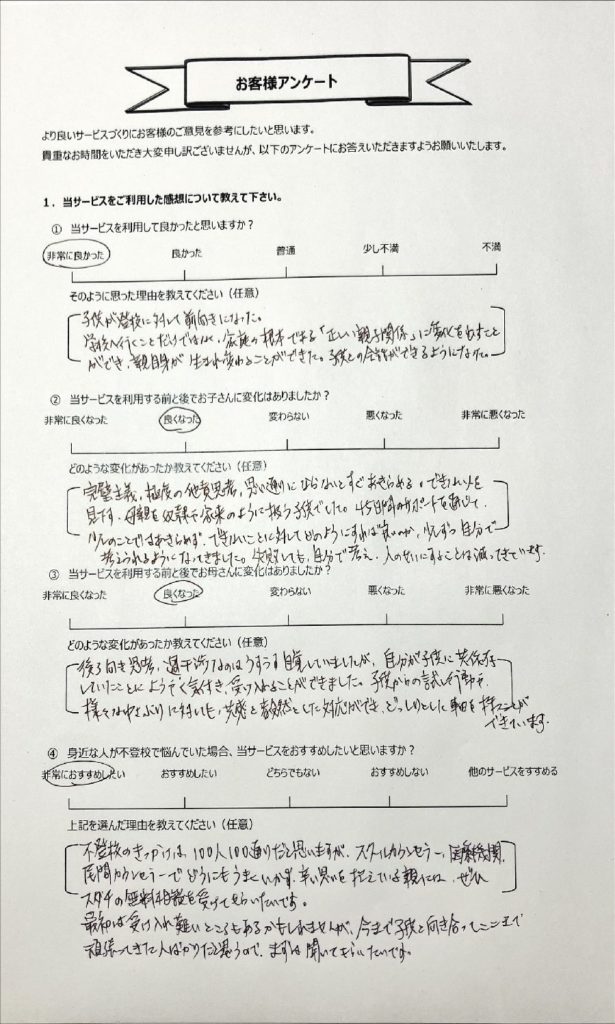 お客様アンケート
より良いサービスづくりにお客様のご意見を参考にしたいと思います。
貴重なお時間をいただき大変申し訳ございませんが、以下のアンケートにお答えいただきますようお願いいたします。
1．当サービスをご利用した感想について教えて下さい。
① 当サービスを利用して良かったと思いますか？
非常に良かった 良かった 普通 少し不満 不満
そのように思った理由を教えてください（任意）
子供が登校に対して前向きになった。
学校へ行くことだけではなく、家庭の根本である「正しい親子関係」に変化を出すこと
ができ、親自身が生まれ変わることができた。子供との会話ができるようになった。
② 当サービスを利用する前と後でお子さんに変化はありましたか？
非常に良くなった 良くなった 変わらない 悪くなった 非常に悪くなった
どのような変化があったか教えてください（任意）
完璧主義、極度の他責思考、思い通りにならないとすぐあきらめる。できない人を
見下す、母親を奴隷や家来のように扱う子供でした。45日間のサポートを通じて、
少しのことではあきらめず、できないことに対してどのようにすれば良いのか、少しずつ自分で
考えられるようになってきました。失敗しても、自分で考え、人のせいにすることは減ってきています。
③ 当サービスを利用する前と後でお母さんに変化はありましたか？
非常に良くなった 良くなった 変わらない 悪くなった 非常に悪くなった
どのような変化があったか教えてください（任意）
後ろ向き思考、過干渉なのはうすうす自覚していましたが、自分が子供に共依存
していたことにようやく気付き、受け入れることができました。子供からの試し行動や、
様々なゆさぶりに対しても、共感と毅然とした対応ができ、どっしりとした軸を持つことが
できています。
④ 身近な人が不登校で悩んでいた場合、当サービスをおすすめしたいと思いますか？
非常におすすめしたい おすすめしたい どちらでもない おすすめしない 他のサービスをすすめる
上記を選んだ理由を教えてください（任意）
不登校のきっかけは、100人100通りだと思いますが、スクールカウンセラー、医療機関、
民間カウンセラーでどうにもうまくいかず、辛い思いを抱えている親には、ぜひ
スダチの無料相談を受けてもらいたいです。
最初は受け入れ難いところもあるかもしれませんが、今まで子供と向き合ってここまで
頑張ってきた人ばかりだと思うので、まずは聞いてもらいたいです。